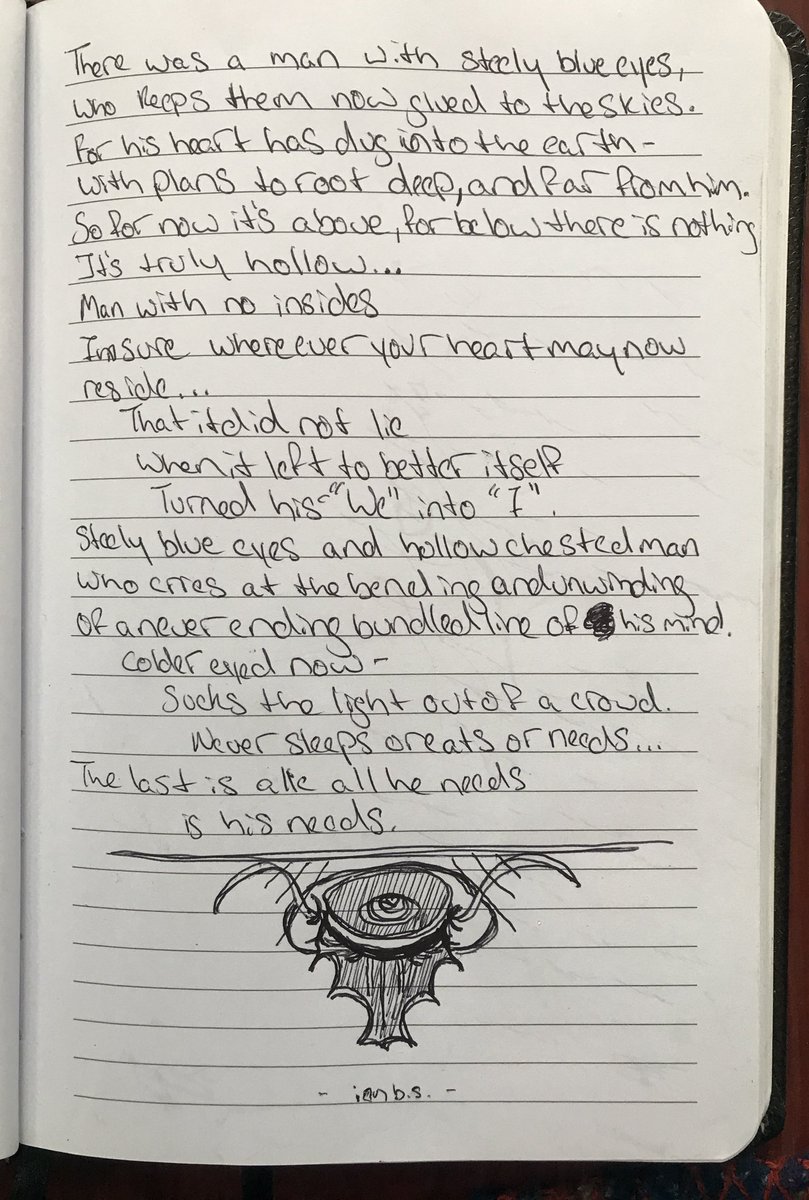 There was a man with steely blue eyes,
who keeps them now glued to the skies.
For his heart has dug into the earth-
with plans to root deep, and far from him.
So for now it's above, for below there is nothing
It's truly hollow...
Man with no insides
Imsure whereever your heart may now
reside...
That it did not lie
When it left to better itself
Turned his "We" into "I".
Steely blue eyes and hollow chested man
who cries at the bending and unwinding
of a never ending bundled line of his mind.
Colder eyed now-
Sucks the light out of a crowd.
Never sleeps or eats or needs...
The last is a lie all he needs
is his needs.
- ian b.s. -